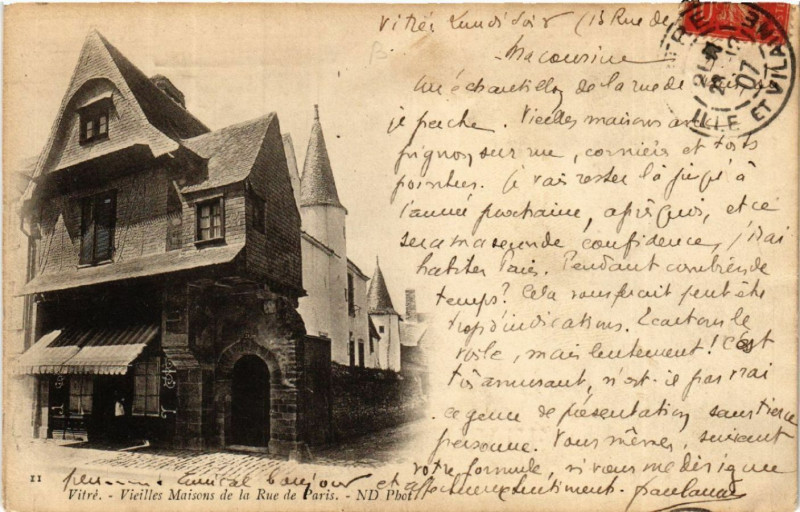 Vitré, Lundi soir (13 Rue de
Ma cousine
Un échantillon de la rue de
je perche. Vieilles maisons
pignon sur rue, et toits
pointus. Je vais rester là jusqu'à
l'année prochaine, après quoi, et ce
sera ma seconde confidence, j'irai
habiter Paris. Pendant combien de
temps? Cela vous ferait peut-être
trop d'indications. Écartons le
voile, mais lentement! C'est
très amusant, n'est-ce pas
ce genre de présentation sans tierce
personne. Vous-même, suivant
votre formule,
Amical bonjour et affectueux sentiment.
11
Vitré. - Vieilles Maisons de la Rue de Paris. - ND Phot
VITRÉ
21
07
ILLE ET VILAINE